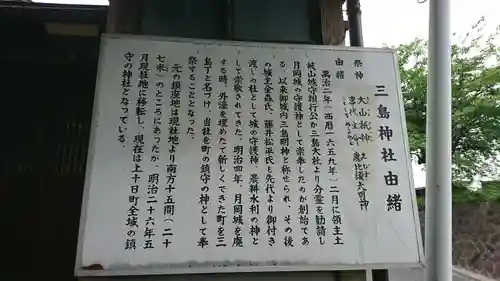 三島神社由緒
祭神
大山祇神
事代主命
恵比須大明神
由緒
萬治二年(西暦一六五九年)二月に領主土
岐山城守頼行公が三島大社より分霊を勧請し
月岡城の守護神として崇奉したのが創始であ
る。以来御城内三島明神と称せられ、その後
の城主金森氏、藤井松平氏も先代より御付き
渡しの社として城の守護神、農耕水利の神と
して崇敬されてきた。明治四年、月岡城を廃
する時、外濠を埋めたて新しくできた町を三
島丁と名づけ、当社を町の守護の神として奉
祭することとなった。
元の鎮座地は現社地より南方十五間(二十
七米)のところにあったが、明治二十六年五
月現社地に移転し、現在は上十日町全域の鎮
守の神社となっている。